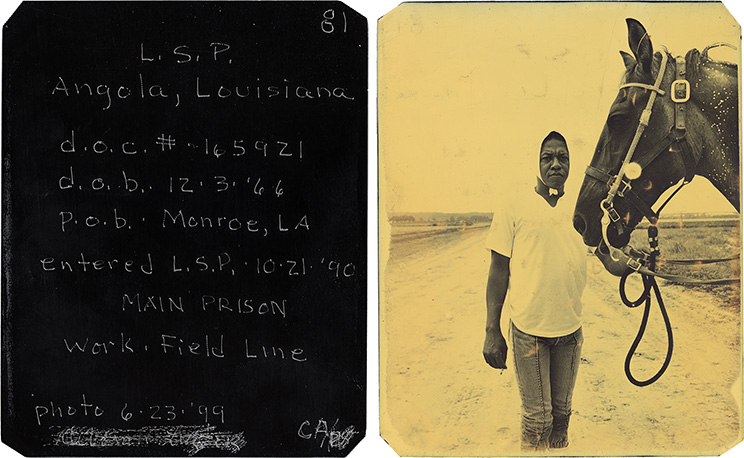 81
L.S.P.
Angola, Louisiana
d.o.c.# 165921
d.o.b. 12.3.'66
p.o.b. Monroe, LA
entered L.S.P. 10.21.'90
MAIN PRISON
work. Field Line
photo 6.23.'99